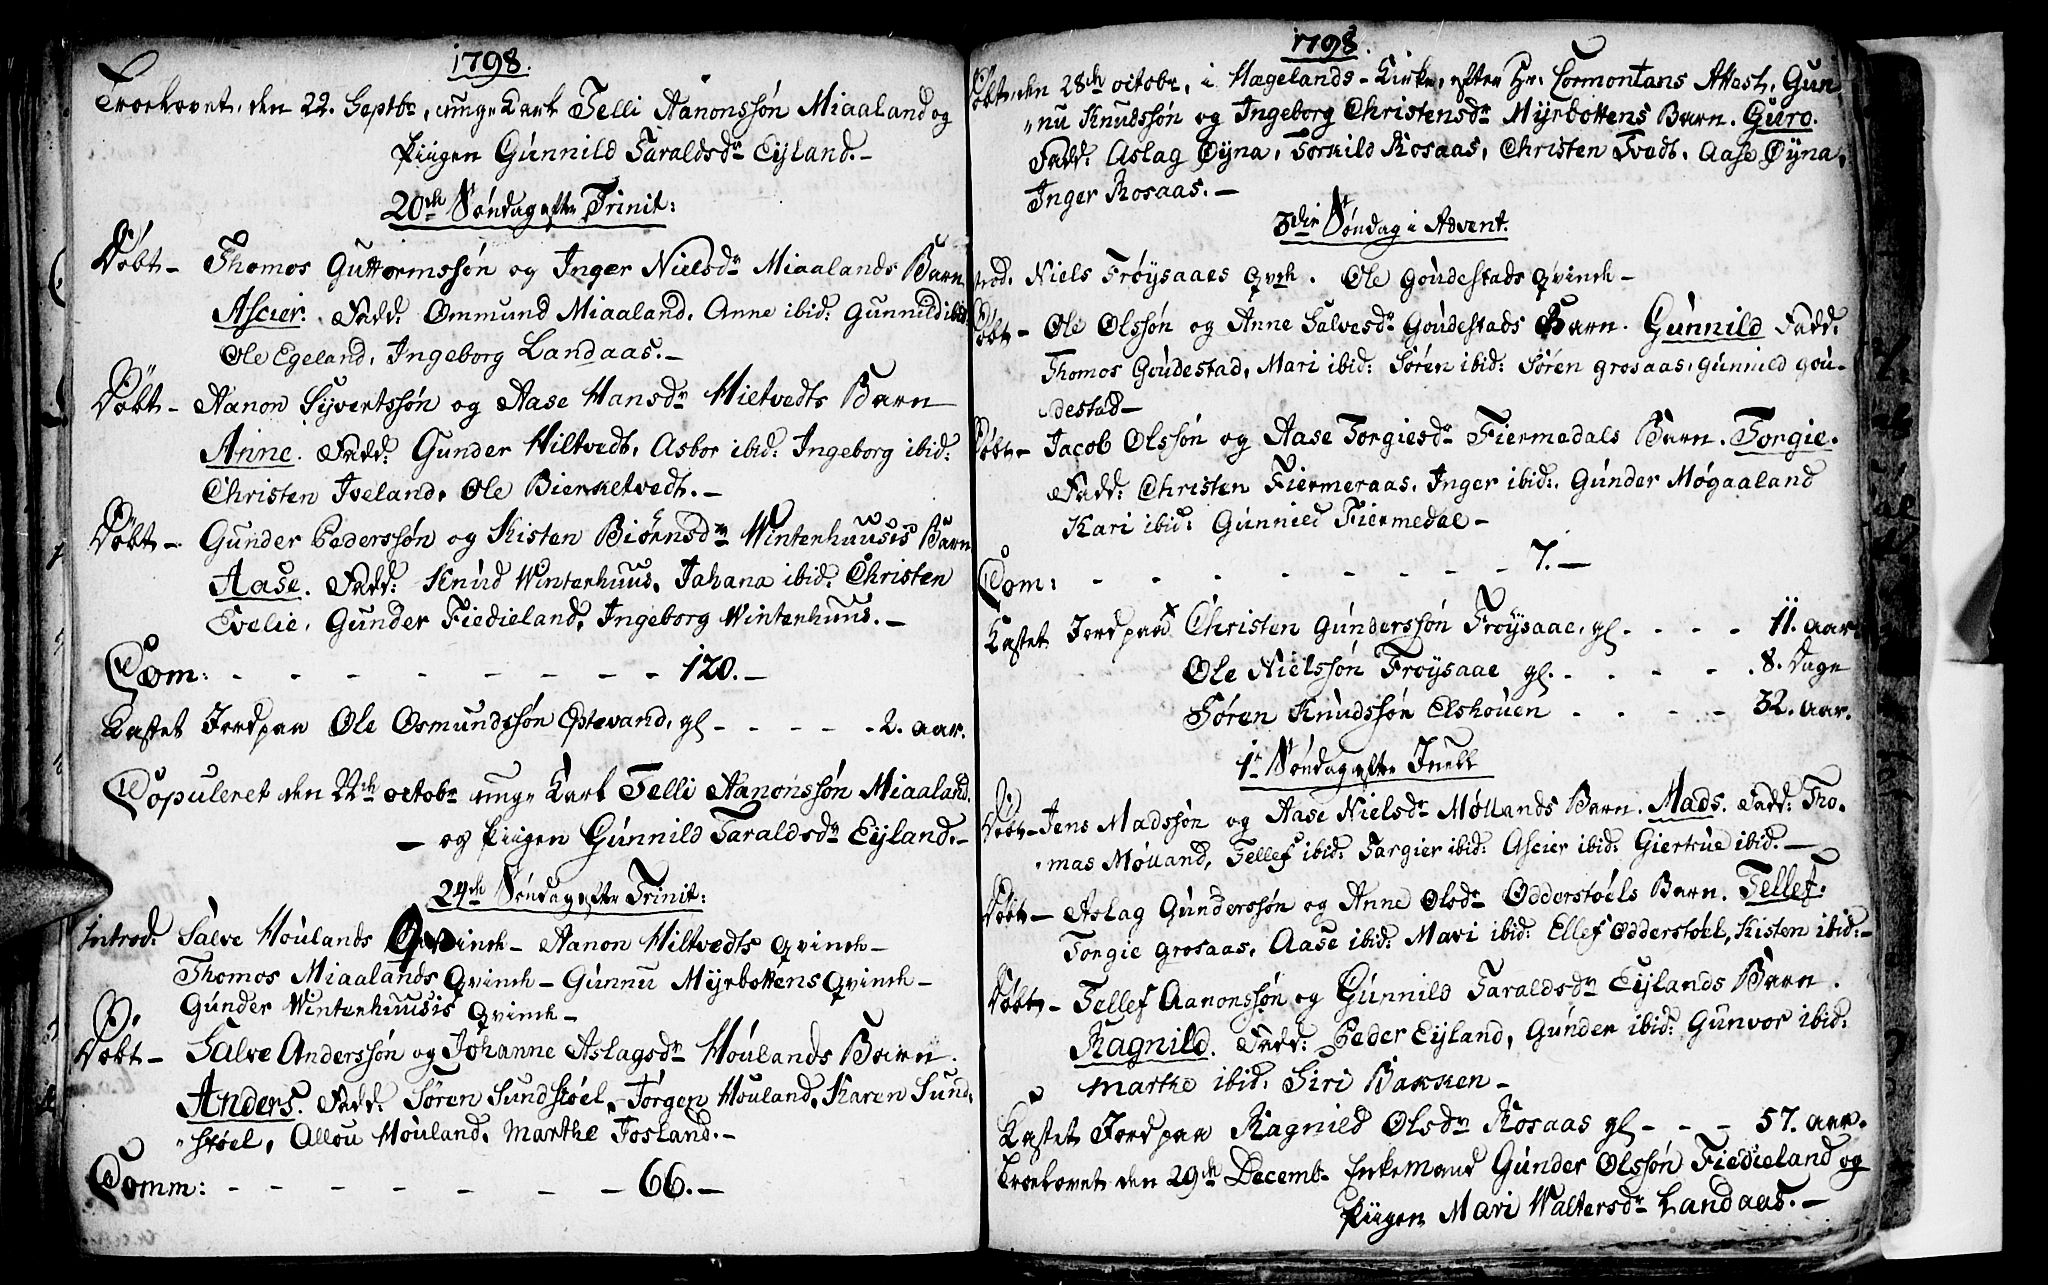 1798.
Troelovet den 22. Septbr, unge Karl Telli Aanonssøn Miaaland og
Piigen Gunnild Taraldsdr Eyland.-
20de Søndag efter Trinit:
Døbt- Thomos Guttormssøn og Inger Nielsdr Miaalands Barn
Ascier. Fadd: Ommund Miaaland, Anne ibid: Gunnild ibid:
Ole Egeland, Ingeborg Landaas.-
Døbt- Aanon Syvertssøn og Aase Hansdr Hiltvedts Barn
Anne. Fadd: Gunder Hiltvedt, Asbor ibid: Ingeborg ibid:
Christen Iveland, Ole Bierketvedt.-
Døbt- Gunder Pederssøn og Kisten Biørnsdr Winterhuusis Barn
Aase. Fadd: Knud Winterhuus, Johana ibid: Christen
Evelie, Gunder Fiedieland, Ingeborg Winterhuus.-
Com: - - - - - - - - 120.-
Kastet Jord paa Ole Osmundssøn Optevand, gl - - - - - 2. aar.
Copuleret den 22de octobr unge Karl Telli Aanonssøn Miaaland
- og Piigen Gunnild Taraldsdr Eyland.-
24de Søndag efter Trinit:
Introd: Salve Houlands Qvinde- Aanon Hiltvedts Qvinde-
Thomos Miaalands Qvinde- Gunnu Myrbottens Qvinde-
Gunder Winterhuusis Qvinde-
Døbt- Salve Anderssøn og Johanne Aslagsdr Houlands Barn.
Anders. Fadd: Søren Sundstøel, Jørgen Houland, Karen Sund-
"støel, Allou Houland, Marthe Fosland.-
Comm: - - - - - - - 66.-
1798.
Døbt, den 28de octobr, i Hægelands-Kirke, efter Hr: Cormontans Attest, Gun-
"nu Knudssøn og Ingeborg Christensdr Myrbottens Barn. Guro.
Fadd: Aslag Øyna, Torkild Rosaas, Christen Tvedt, Aase Øyna,
Inger Rosaas.-
3die Søndag i Advent.
Introd. Niels Frøysaaes Qvde. Ole Goudestads Qvinde-
Døbt- Ole Olssøn og Anne Salvesdr Goudestads Barn. Gunnild Fadd:
Thomos Goudestad, Mari ibid: Søren ibid: Søren Grosaas, Gunnild Gou-
destad-
Døbt- Jacob Olssøn og Aase Torgiesdr Fiermedals Barn. Torgie.
Fadd: Christen Fiermeraas, Inger ibid: Gunder Møgaaland
Kari ibid: Gunnild Fiermedal-
Com: - - - - - - - 7.-
Kastet Jord paa Christen Gunderssøn Frøysaae, gl - - - - 11. aar
Ole Nielssøn Frøysaae gl. - - - - 8. Dage
Søren Knudssøn Elshouen - - - - 32. aar.
1te Søndag efter Juell
Døbt- Jens Madssøn og Aase Nielsdr Møllands Barn. Mads. Fadd: Tho-
"mas Mølland, Tellef ibid: Targier ibid: Ascier ibid: Giertrue ibid.-
Døbt- Aslag Gunderssøn og Anne Olsdr Odderstøels Barn. Tellef.
Torgie Grosaas, Aase ibid: Mari ibid: Ellef Odderstøel, Kisten ibid:-
Døbt- Tellef Aanonssøn og Gunnild Taraldsdr Eylands Barn.
Ragnild. Fadd: Peder Eyland, Gunder ibid: Gunvor ibid:
Marthe ibid: Siri Bakken-
Kastet Jord paa Ragnild Olsdr Rosaas gl - - - 57. aar.
Troelovet den 29de Decemb- Enkemand Gunder Olssøn Fiedieland og
Piigen Mari Waltersdr Landaas.-